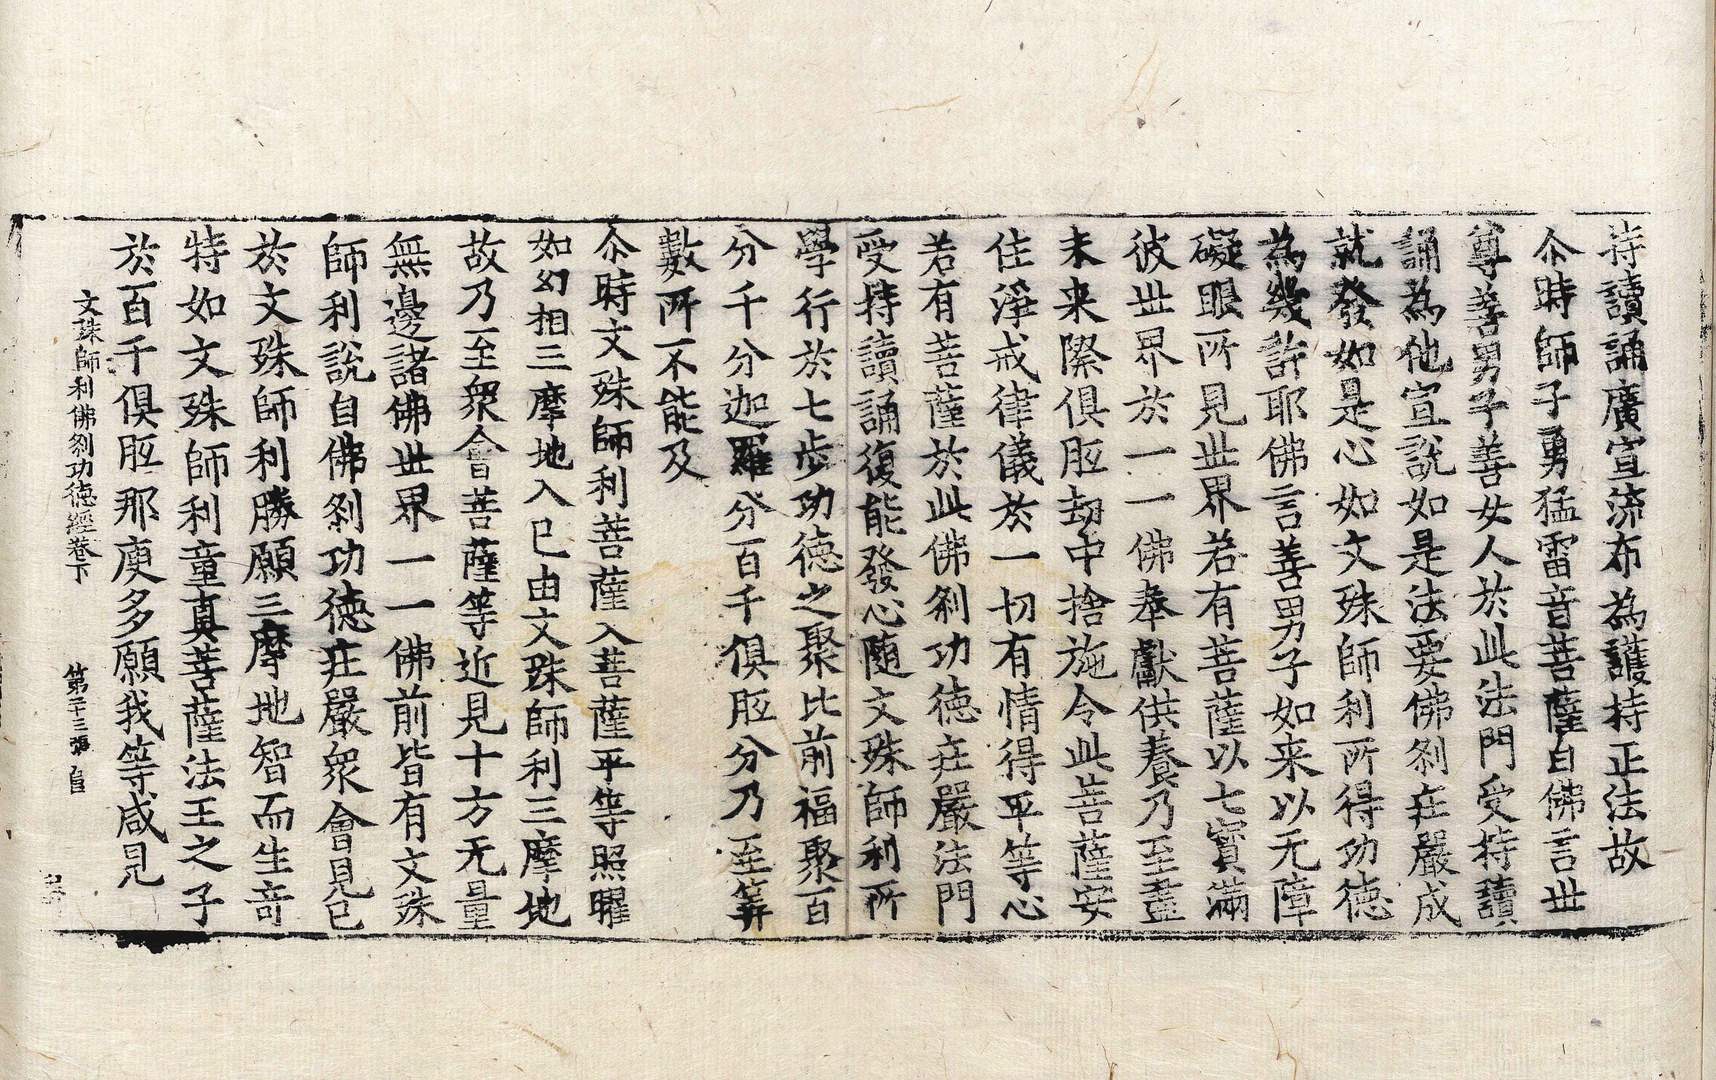 持讀誦廣宣流布為護持正法故
尒時師子勇猛雷音菩薩白佛言世
尊善男子善女人於此法門受持讀
誦為他宣說如是法要佛刹莊嚴成
就發如是心如文殊師利所得功德
為幾許耶佛言善男子如来以无障
礙眼所見世界若有菩薩以七寶滿
彼世界於一一佛奉獻供養乃至盡
未来際俱胝劫中捨施令此菩薩安
住淨戒律儀於一切有情得平等心
若有菩薩於此佛刹功德莊嚴法門
受持讀誦復能發心隨文殊師利所
學行於七步功德之聚比前福聚百
分千分迦羅分百千俱胝分乃至筭
數所不能及
尒時文殊師利菩薩入菩薩平等照曜
如幻相三摩地入已由文殊師利三摩地
故乃至衆會菩薩等近見十方无量
無邊諸佛世界一一佛前皆有文殊
師利說自佛刹功德莊嚴衆會見已
於文殊師利勝願三摩地智而生奇
特如文殊師利童真菩薩法王之子
於百千俱胝那庾多願我等咸見
文殊師利佛刹功德經卷下 第二十三張 自